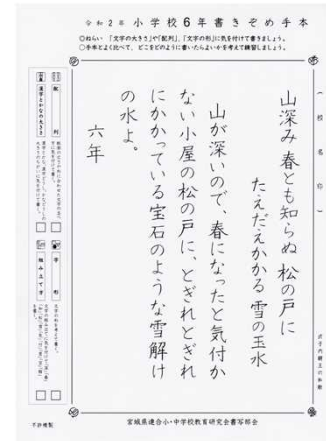 令和2年 小学校6年書きぞめ手本
◎ねらい 「文字の大きさ」や「配列」、「文字の形」に気を付けて書きましょう。
○手本とよく比べて、どこをどのように書いたらよいかを考えて練習しましょう。
(学校名印)
山深み春とも知らぬ松の戸に
たえだえかかる雪の玉水
山が深いので、春になったと気付か
ない小屋の松の戸に、とぎれとぎれ
にかかっている宝石のような雪解け
の水よ。
六年
式子内親王の和歌
配列
字形
漢字とかなの大きさ
組み立て方
宮城県連合小・中学校教育研究会書写部会
不許複製